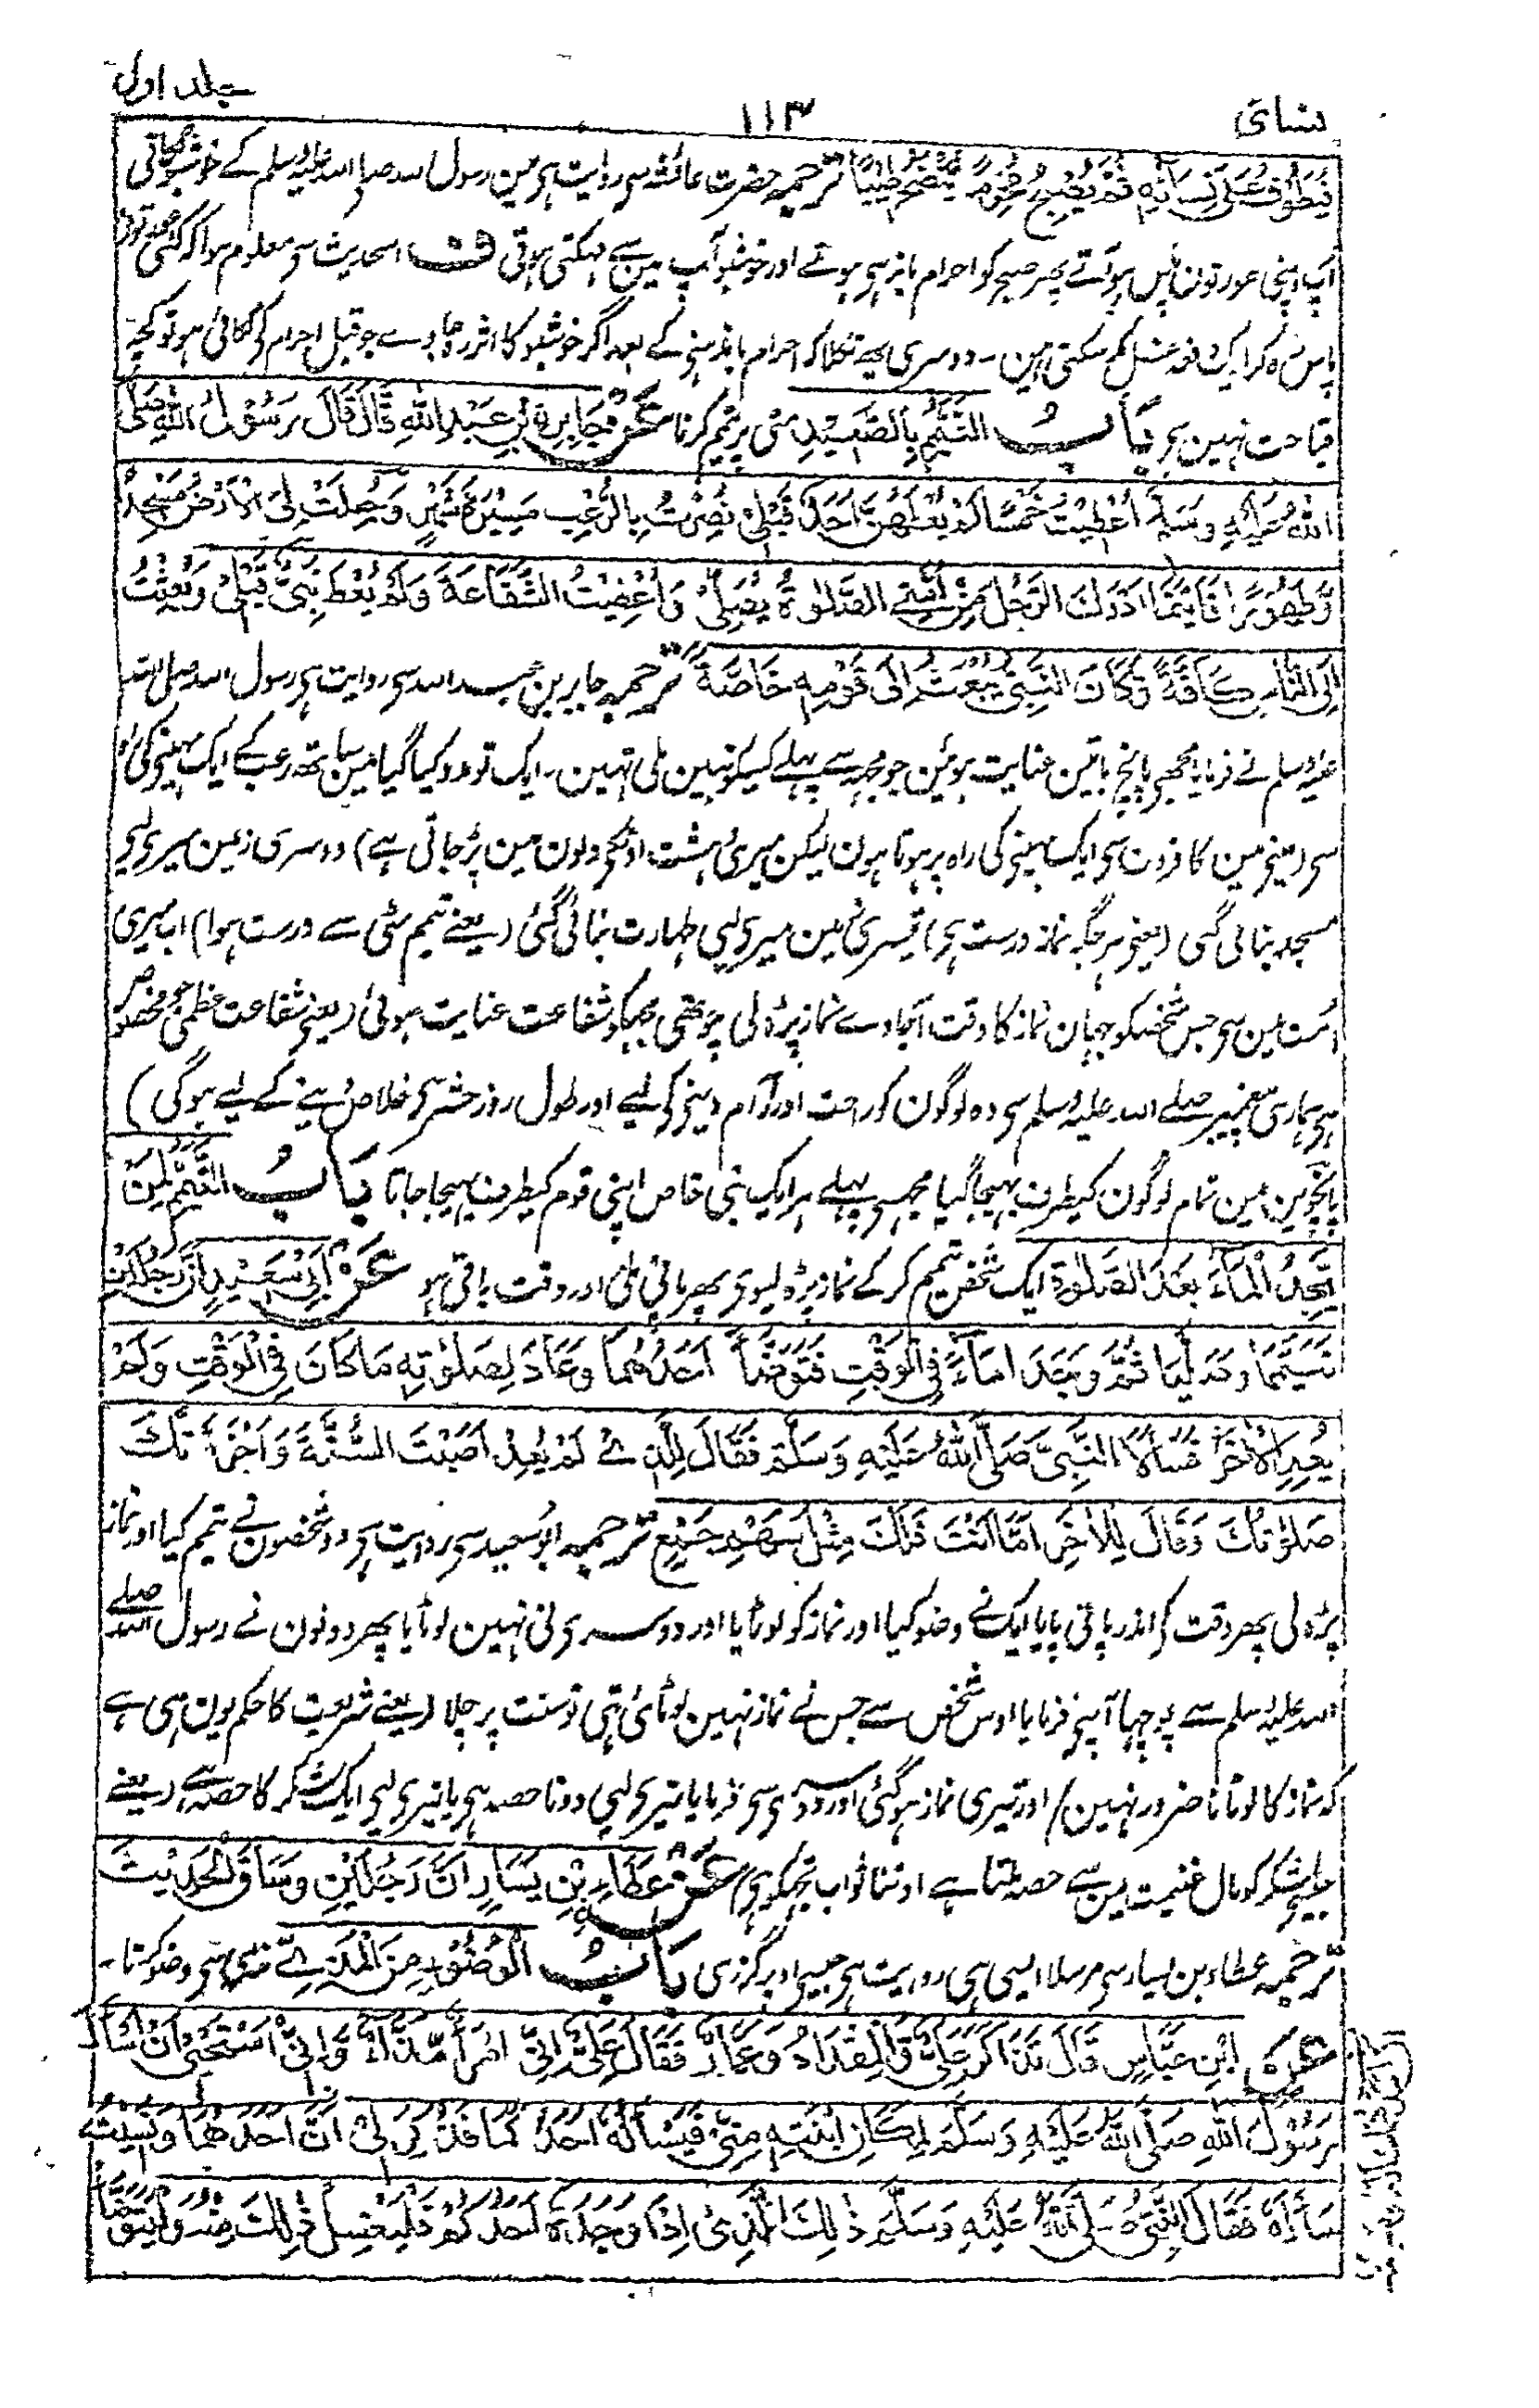 نسائی ۱۱۳ جلد اول
فَیَطُوْفُ عَلٰی نِسَائِہٖ ثُمَّ یُصْبِحُ مُحْرِمًا یَنْضَخُ طِیْبًا ترجمہ حضرت عائشہ سے روایت ہی مین رسول اللہ صلی اللہ علیہ وسلم کے خوشبو لگاتی
آپ اپنی عورتون پاس ہو آتے پھر صبح کو احرام باندہی ہوتے اور خوشبو آپ مین سے مہکتی ہوتی ف اسحدیث سے معلوم ہوا کہ کئی عورتون
پاس رہ کر ایک دفعہ غسل کر سکتی ہین ۔ دوسری یہ نکلا کہ احرام باندہنی کے بعد اگر خوشبو کا اثر رہ جاوے جو قبل احرام کی لگائی ہو تو کچہ
قباحت نہین ہی بَابُ التَّیَمُّمِ بِالصَّعِیْدِ مٹی پر تیمم کرنا عَنْ جَابِرِ بْنِ عَبْدِ اللّٰہِ قَالَ قَالَ رَسُوْلُ اللّٰہِ صَلَّی
اللّٰہُ عَلَیْہِ وَسَلَّمَ اُعْطِیْتُ خَمْسًا لَمْ یُعْطَہُنَّ اَحَدٌ قَبْلِیْ نُصِرْتُ بِالرُّعْبِ مَسِیْرَۃَ شَہْرٍ وَجُعِلَتْ لِیَ الْاَرْضُ مَسْجِدًا
وَّطَہُوْرًا فَاَیْنَمَا اَدْرَكَ الرَّجُلَ مِنْ اُمَّتِی الصَّلٰوۃُ یُصَلِّیْ وَاُعْطِیْتُ الشَّفَاعَۃَ وَلَمْ یُعْطَ نَبِیٌّ قَبْلِیْ وَبُعِثْتُ
اِلَی النَّاسِ کَافَّۃً وَّکَانَ النَّبِیُّ یُبْعَثُ اِلٰی قَوْمِہٖ خَاصَّۃً ترجمہ جابر بن عبد اللہ سے روایت ہی رسول اللہ صلی اللہ
علیہ وسلم نے فرمایا مجھے پانچ باتین عنایت ہوئین جو مجہہ سے پہلے کسیکو نہین ملی تہین ۔ ایک تو مدد کیا گیا مین ساتھ رعب کے ایک مہینے کی راہ
سے (یعنی مین کافرون سے ایک مہینے کی راہ پر ہوتا ہون لیکن میری ہشت اونکی دلون مین پڑ جاتی ہے) دوسری زمین میری لیے
مسجد بنائی گئی (یعنی ہر جگہ نماز درست ہی) تیسری زمین میری لیے طہارت بنائی گئی (یعنے تیمم مٹی سے درست ہوا) اب میری
امت مین سے جس شخصکو جہان نماز کا وقت آجاوے نماز پڑہ لی چوتھی مجہکو شفاعت عنایت ہوئی (یعنی شفاعت عظمی جو مخصوص
ہی ہماری پیغمبر صلے اللہ علیہ وسلم سے وہ لوگون کو راحت اور آرام دینی کی لیے اور طول روز حشر سے خلاص دینے کے لیے ہوگی)
پانچوین مین تمام لوگون کیطرف بہیجا گیا مجہسے پہلے ہر ایک نبی خاص اپنی قوم کیطرف بہیجا جاتا بَابُ التَّیَمُّمِ لِمَنْ
یَّجِدُ الْمَآءَ بَعْدَ الصَّلٰوۃِ ایک شخص تیمم کر کے نماز پڑہ لیوے پھر پانی ملی اور وقت باقی ہو عَنْ اَبِیْ سَعِیْدٍ اَنَّ رَجُلَیْنِ
تَیَمَّمَا وَصَلَّیَا ثُمَّ وَجَدَا مَآءً فِی الْوَقْتِ فَتَوَضَّأَ اَحَدُہُمَا وَعَادَ لِصَلٰوتِہٖ مَا کَانَ فِی الْوَقْتِ وَلَمْ
یُعِدِ الْاٰخَرُ فَسَاَلَا النَّبِیَّ صَلَّی اللّٰہُ عَلَیْہِ وَسَلَّمَ فَقَالَ لِلَّذِیْ لَمْ یُعِدْ اَصَبْتَ السُّنَّۃَ وَاَجْزَأَتْكَ
صَلٰوتُكَ وَقَالَ لِلْاٰخَرِ اَمَّا اَنْتَ فَلَكَ مِثْلُ سَہْمِ جَمْعٍ ترجمہ ابو سعید سے روایت ہی دو شخصون نے تیمم کیا اور نماز
پڑہ لی پھر وقت کی اندر پانی پایا ایک نے وضو کیا اور نماز کو لوٹایا اور دوسری نی نہین لوٹایا پھر دونون نے رسول اللہ صلے
اللہ علیہ وسلم سے پوچہا آپنے فرمایا اوس شخص سے جس نے نماز نہین لوٹائی تہی تو سنت پر چلا (یعنے شریعت کا حکم یون ہی ہے
کہ نماز کا لوٹانا ضرور نہین) اور تیری نماز ہو گئی اور دوسری سے فرمایا تیری لیے دونا حصہ ہی یا تیری لیے ایک لشکر کا حصہ ہے (یعنے
جیسے لشکر کو مال غنیمت مین سے حصہ ملتا ہے اوتنا ثواب تجہکو ہی) عَنْ عَطَاءِ بْنِ یَسَارٍ اَنَّ رَجُلَیْنِ وَسَاقَ الْحَدِیْثَ
ترجمہ عطاء بن یسار سے مرسلا ایسی ہی روایت ہی جیسے اوپر گزری بَابُ الْوُضُوْءِ مِنَ الْمَذِیْ مذی سے وضو کرنا ۔
عَنِ ابْنِ عَبَّاسٍ قَالَ تَذَاکَرَ عَلِیٌّ وَالْمِقْدَادُ وَعَمَّارٌ فَقَالَ عَلِیٌّ اِنِّیْ امْرَأٌ مَذَّاءٌ وَاِنِّیْ اَسْتَحْیِیْ اَنْ اَسْاَلَ
رَسُوْلَ اللّٰہِ صَلَّی اللّٰہُ عَلَیْہِ وَسَلَّمَ لِمَکَانِ ابْنَتِہٖ مِنِّیْ فَیَسْاَلُہٗ اَحَدُکُمَا فَذُکِرَ لِیْ اَنَّ اَحَدَہُمَا وَنَسِیْتُہٗ
سَاَلَہٗ فَقَالَ النَّبِیُّ صَلَّی اللّٰہُ عَلَیْہِ وَسَلَّمَ ذٰلِكَ الْمَذْیُ اِذَا وَجَدَہٗ اَحَدُکُمْ فَلْیَغْسِلْ ذٰلِكَ مِنْہُ وَلْیَتَوَضَّأْ